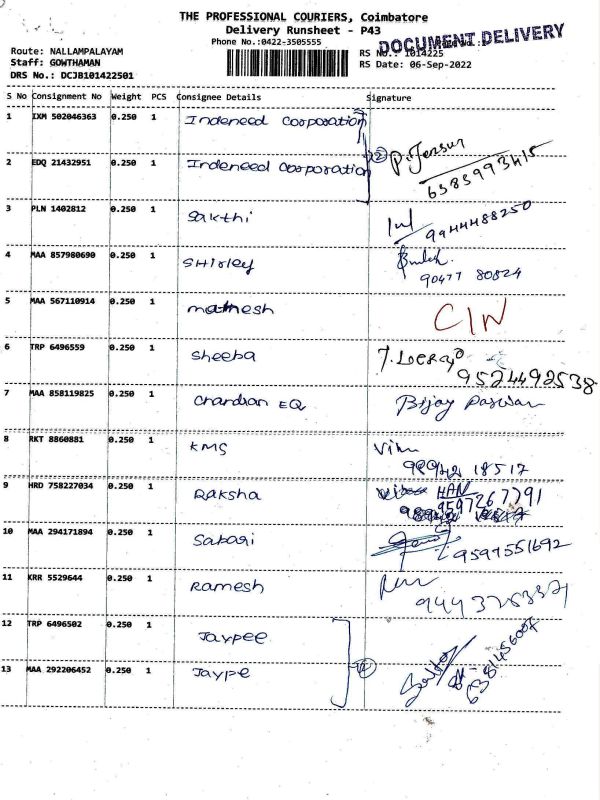 THE PROFESSIONAL COURIERS, Coimbatore
Delivery Runsheet - P43
Phone No.:0422-3505555
DOCUMENT DELIVERY
Route: NALLAMPALAYAM
Staff: GOWTHAMAN
DRS No.: DCJB101422501
RS No.: 1014225
RS Date: 06-Sep-2022
S No Consignment No Weight PCS Consignee Details Signature
1 IXM 502046363 0.250 1 Indeneed Corporation
2 EDQ 21432951 0.250 1 Indeneed Corporation 2 6383993415
3 PLN 1402812 0.250 1 Sakthi 9944488250
4 MAA 857980690 0.250 1 SHirley 90477 80824
5 MAA 567110914 0.250 1 mathesh CIN
6 TRP 6496559 0.250 1 Sheeba 9524492538
7 MAA 858119825 0.250 1 Chandran EQ Bijoy Paswan
8 RKT 8860881 0.250 1 KMS 18517
9 HRD 758227034 0.250 1 Raksha HAN 9597267791
10 MAA 294171894 0.250 1 Sabari 9597551692
11 KRR 5529644 0.250 1 Ramesh
12 TRP 6496502 0.250 1 Jaypee
13 MAA 292206452 0.250 1 Jaype 6381456007